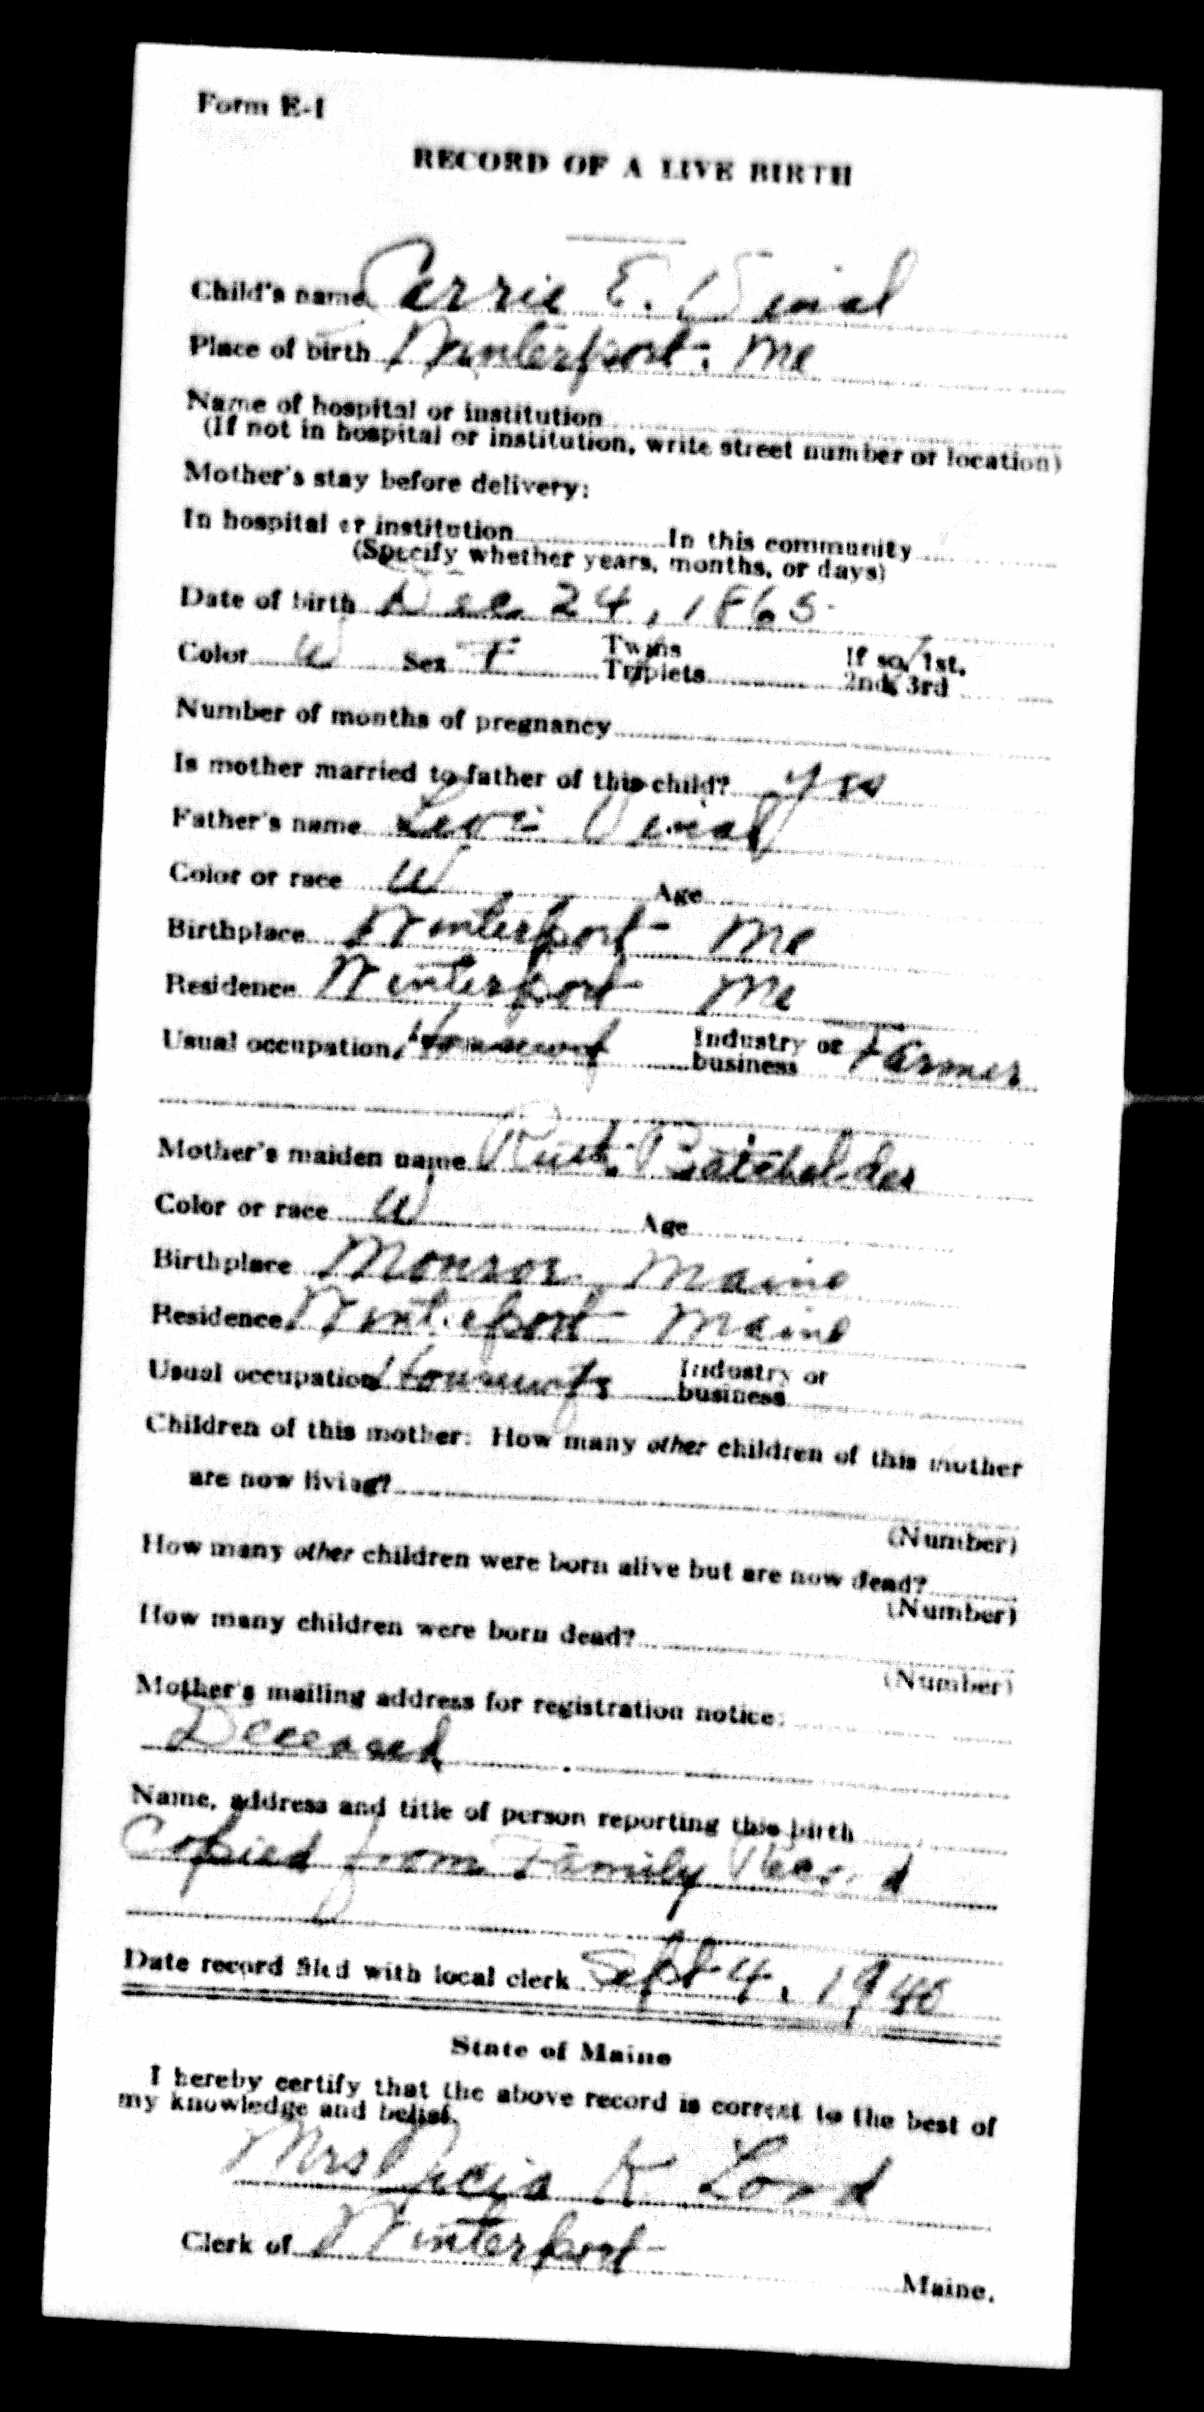 Form E-1
RECORD OF A LIVE BIRTH
Child's name Carrie E. Vinal
Place of birth Winterport, Me
Name of hospital or institution
(If not in hospital or institution, write street number or location)
Mother's stay before delivery:
In hospital or institution In this community
(Specify whether years, months, or days)
Date of birth Dec. 24, 1865
Color W Sex F Twins Triplets If so, 1st. 2nd, 3rd
Number of months of pregnancy
Is mother married to father of this child? Yes
Father's name Levi Vinal
Color or race W Age
Birthplace Winterport Me
Residence Winterport Me
Usual occupation Industry or business Farmer
Mother's maiden name Ruth Batchelder
Color or race W Age
Birthplace Monroe Maine
Residence Winterport Maine
Usual occupation Housewife Industry or business
Children of this mother: How many other children of this mother
are now living?
(Number)
How many other children were born alive but are now dead?
(Number)
How many children were born dead?
(Number)
Mother's mailing address for registration notice:
Deceased
Name, address and title of person reporting this birth
Copied from Family Record
Date record filed with local clerk Sept 4, 1940
State of Maine
I hereby certify that the above record is correct to the best of
my knowledge and belief.
Mrs K Lord
Clerk of Winterport Maine.